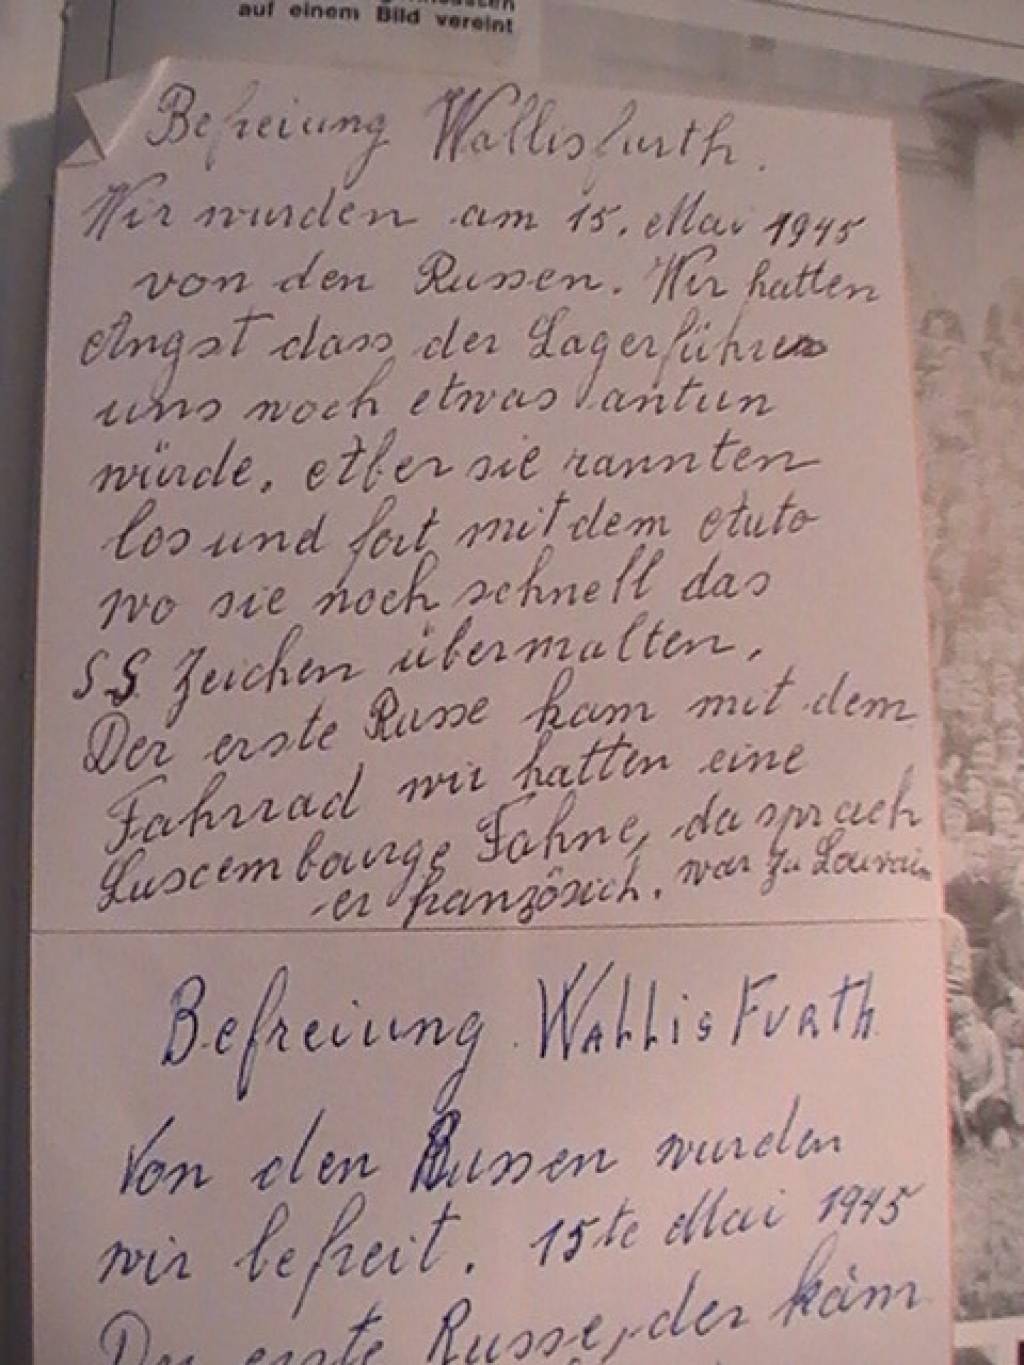 auf einem Bild vereint
Befreiung Wallisfurth.
Wir wurden am 15. Mai 1945
von den Russen. Wir hatten
Angst dass der Lagerführer
uns noch etwas antun
würde. Aber sie rannten
los und fort mit dem Auto
wo sie noch schnell das
SS Zeichen übermalten.
Der erste Russe kam mit dem
Fahrrad wir hatten eine
Luxembourge Fahne, da sprach
er französich. war zu Louvain
Befreiung WallisFurth
Von den Russen wurden
wir befreit. 15te Mai 1945
Der erste Russe, der kam